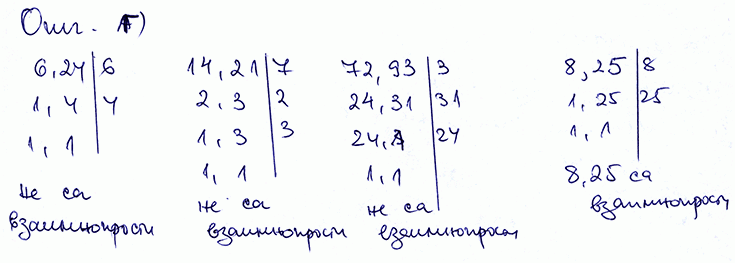 Отг. Г)
6,24 | 6
1, 4 | 4
1, 1
не са
взаимнопрости
14, 21 | 7
2, 3 | 2
1, 3 | 3
1, 1
не са
взаимнопрости
72, 93 | 3
24, 31 | 31
24, 1 | 24
1, 1
не са
взаимнопрости
8, 25 | 8
1, 25 | 25
1, 1
8, 25 са
взаимнопрости